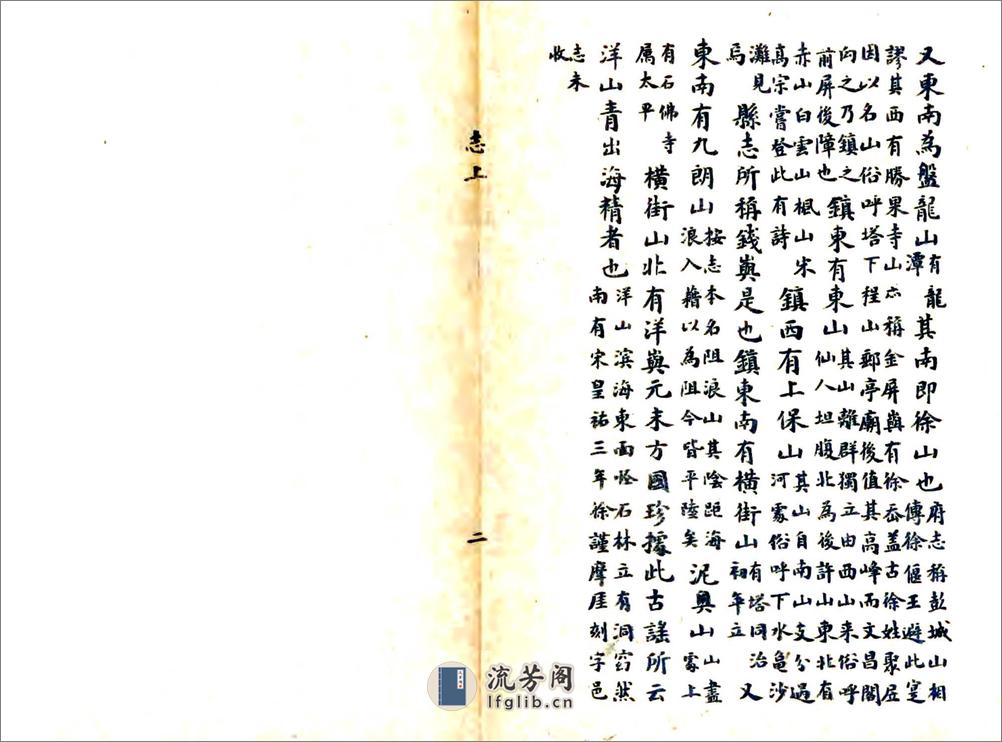 又東南為盤龍山有龍潭其南即徐山也府志称彭城山相傳徐偃王避此寔
謬其西有勝果寺山亦稱金屏嶴有徐岙盖古徐姓聚居因以名山俗呼塔下程山鄭亭廟後值其高峰而文昌閣
向之乃鎮之前屏後障也鎮東有東山其山離群獨立由西山来俗呼仙人坦腹北為後許山東北有
赤山白雲山楓山宋高宗嘗登此有詩鎮西有上保山其山自南山支分過河處俗呼下水龜沙
灘見焉縣志所稱錢嶴是也鎮東南有横街山有塔同治初年立又
東南有九朗山按志本名阻浪山其陰距海浪入藉以為阻今皆平陸矣泥奥山山盡處上
有石佛寺属太平横街山北有洋嶴元末方國珍據此古謡所云
洋山青出海精者也洋山滨海東面怪石林立有洞窈然南有宋皇祐三年徐謹摩厓刻字邑
志未收
志上
二
流芳阁
lfglib.cn